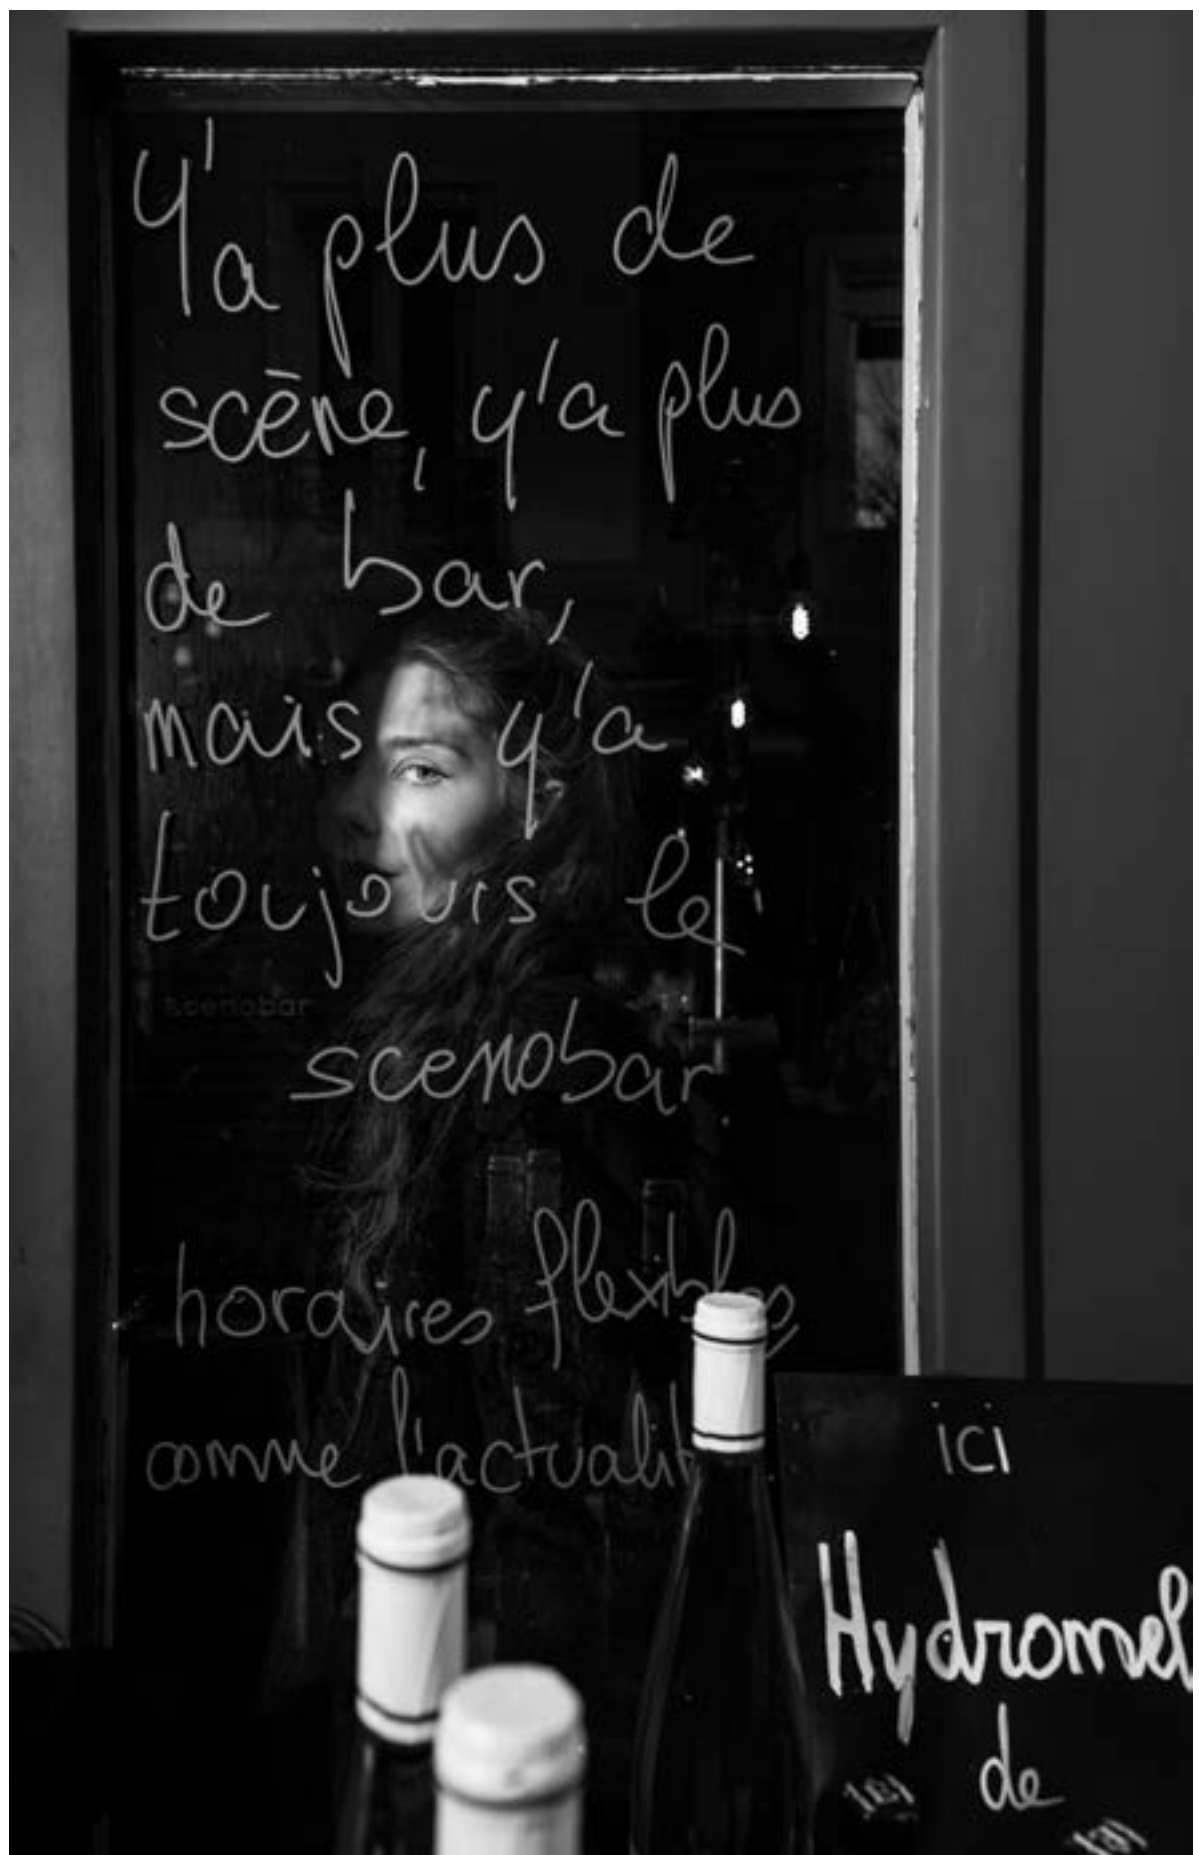 Y'a plus de
scène, y'a plus
de bar,
mais y'a
toujours le
scenobar
scenobar
horaires flexibles
comme l'actualit
ici
Hydromel
de
ici